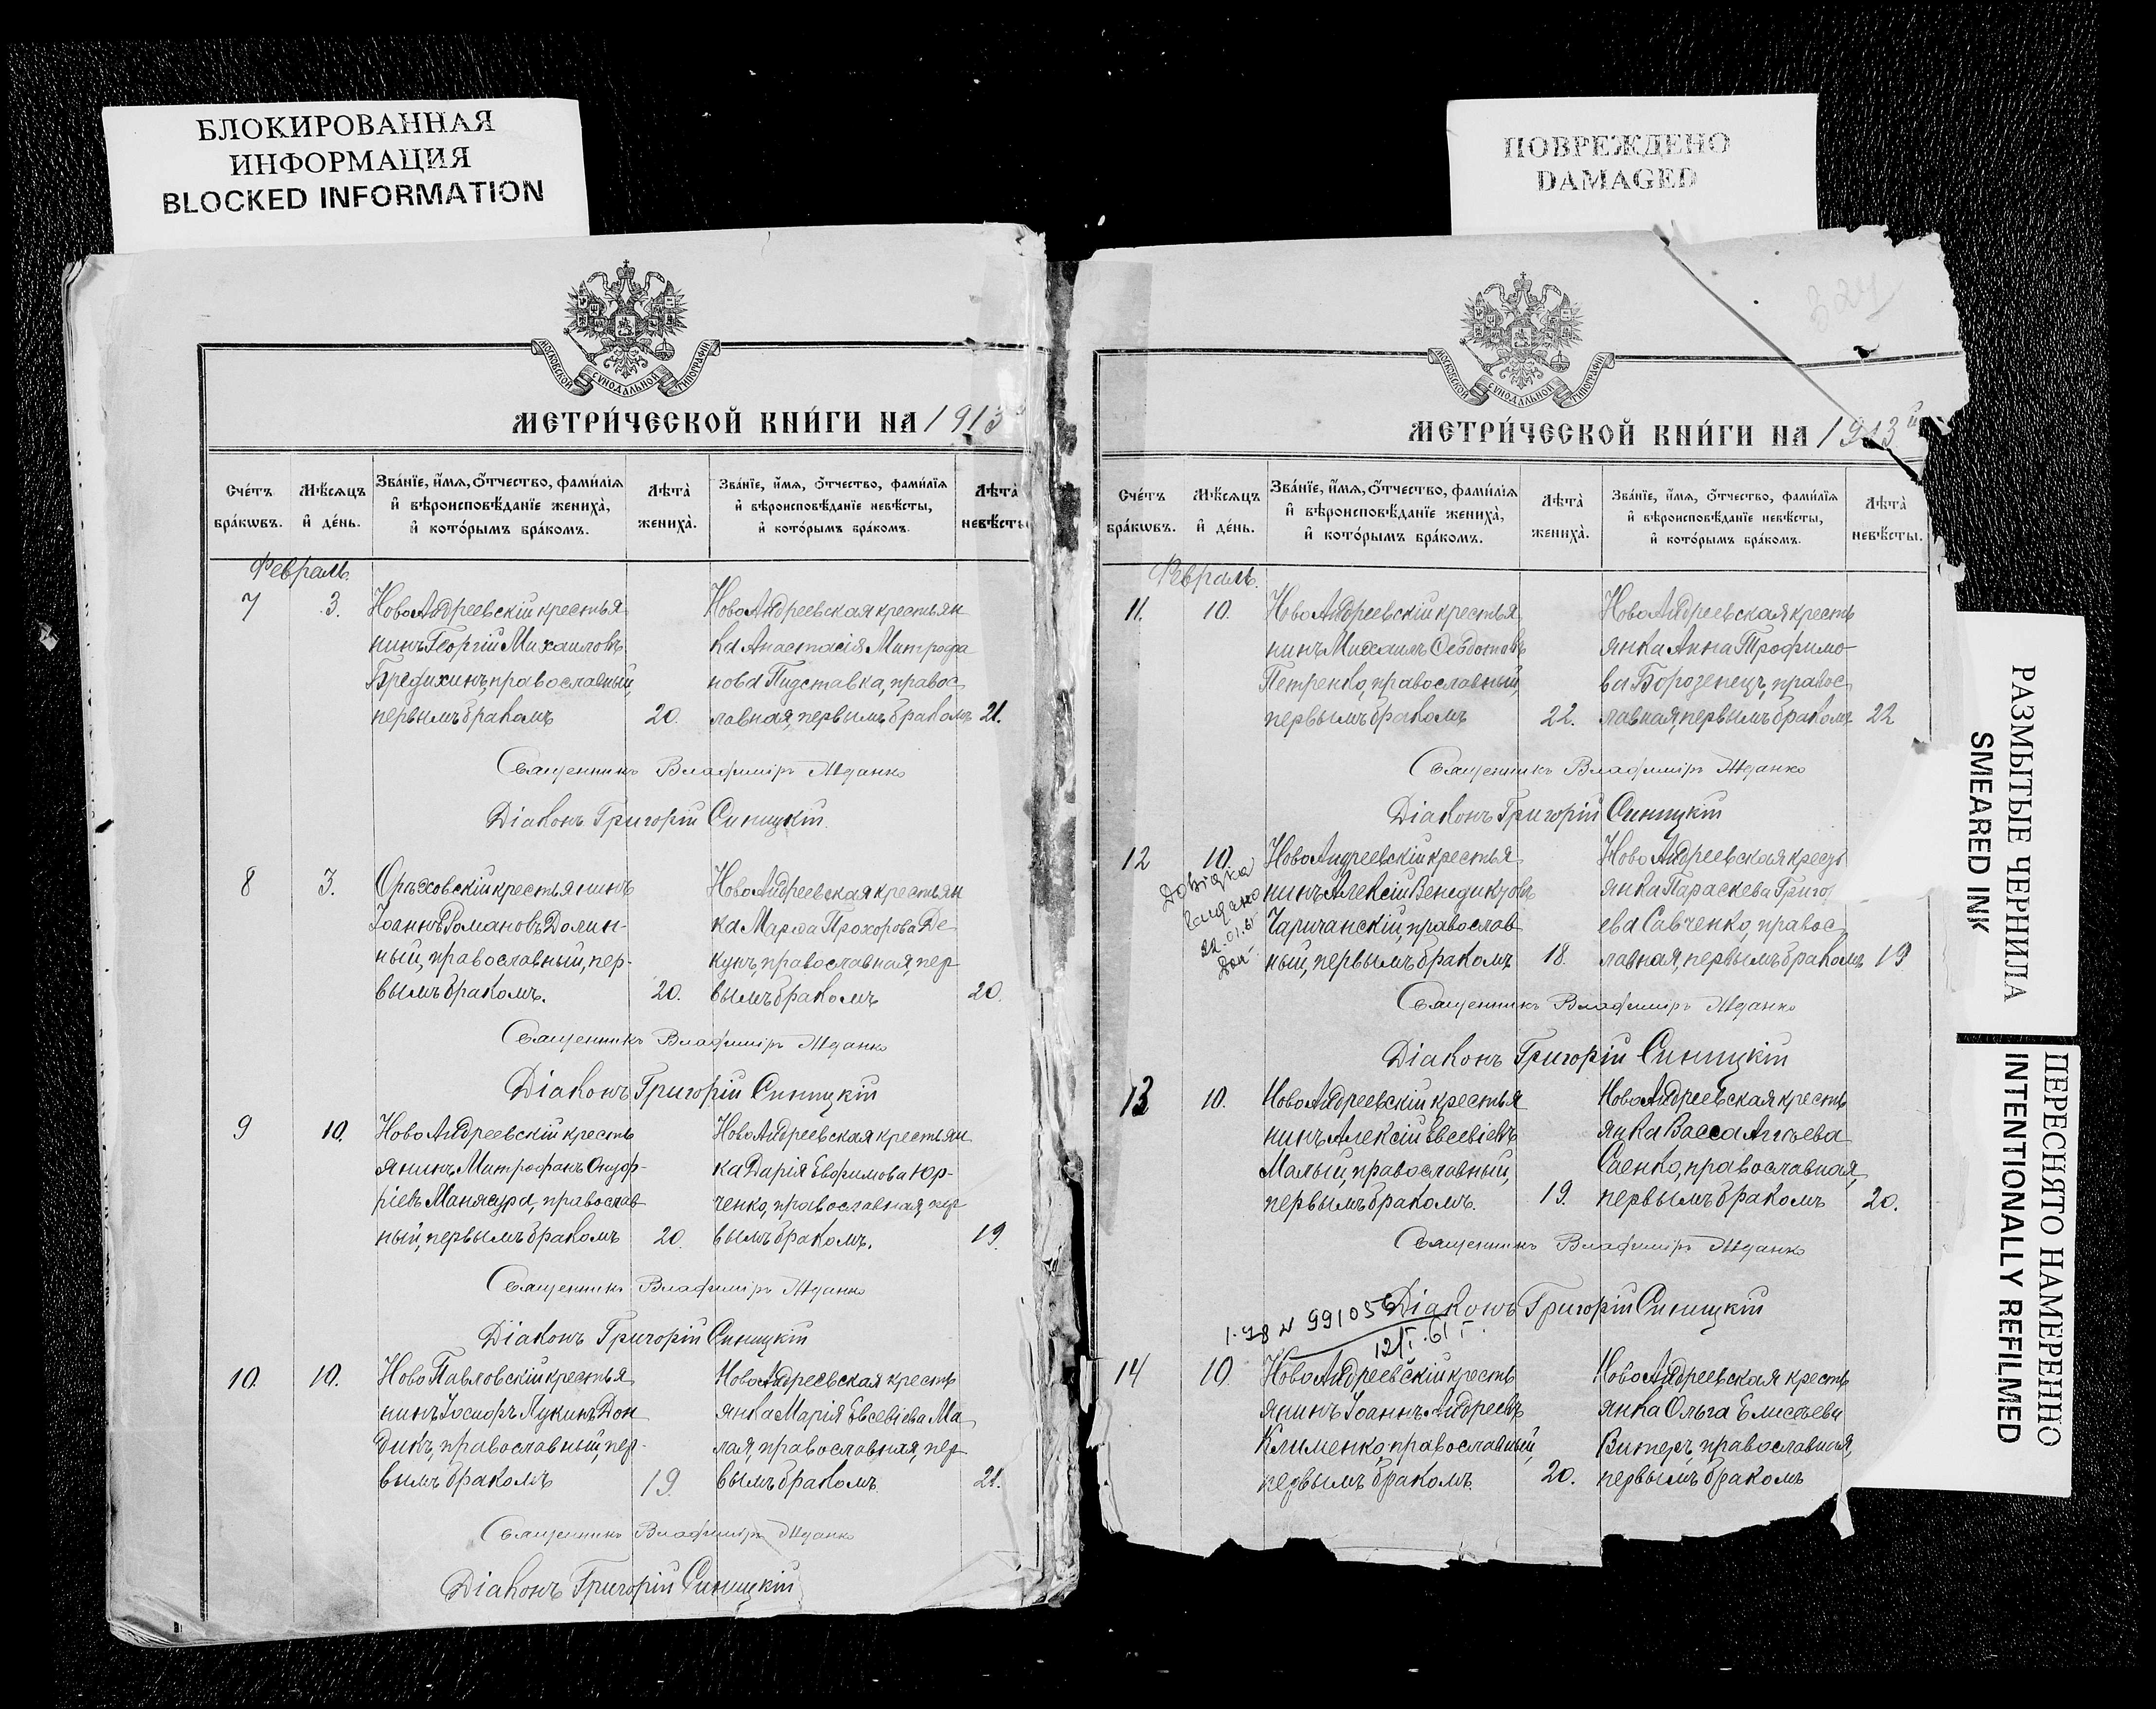 БЛОКИРОВАННАЯ
ИНФОРМАЦИЯ
BLOCKED INFORMATION
МОСКОВСКОЙ СѴНОДАЛЬНОЙ ТИПОГРАФИИ
МЕТРИ́ЧЕСКОЙ КНИ́ГИ НА 1913
Сче́тъ бра́кѡвъ.
Мѣ́сѧцъ и҆ де́нь.
Зва́нїе, и҆́мѧ, ѻ҆́тчество, фами́лїѧ и҆ вѣроисповѣ́данїе жениха̀, и҆ кото́рымъ бра́комъ.
Лѣта̀ жениха̀.
Зва́нїе, и҆́мѧ, ѻ҆́тчество, фами́лїѧ и҆ вѣроисповѣ́данїе невѣ́сты, и҆ кото́рымъ бра́комъ.
Лѣта̀ невѣ́сты
Февраль.
7 3. НовоАндреевскій крестья
нинъ Георгій Михаиловъ
Бредихинъ, православный,
первымъ бракомъ 20.
НовоАндреевская крестьян
ка Анастасія Митрофа
нова Пидставка, правос
лавная, первымъ бракомъ 21.
Священникъ Владиміръ Жданко
Діаконъ Григорій Синицкій.
8 3. Орѣховскій крестьянинъ
Іоаннъ Романовъ Долин-
ный, православный, пер-
вымъ бракомъ. 20.
НовоАндреевская крестьян
ка Марѳа Прохорова Де
кунъ, православная, пер
вымъ бракомъ 20.
Священникъ Владиміръ Жданко
Діаконъ Григорій Синицкій
9 10. НовоАндреевскій кресть
янинъ Митрофанъ Онуф-
ріевъ Манясура, православ
ный, первымъ бракомъ 20.
НовоАндреевская крестьян
ка Дарія Евфимова Юр-
ченко, православная, пер
вымъ бракомъ. 19.
Священникъ Владиміръ Жданко
Діаконъ Григорій Синицкій
10. 10. НовоПавловскій крестья
нинъ Іосифъ Лукинъ Дон
дикъ, православный, пер-
вымъ бракомъ 19.
НовоАндреевская кресть
янка Марія Евсевіева Ма
лая, православная, пер
вымъ бракомъ. 21.
Священникъ Владиміръ Жданко
Діаконъ Григорій Синицкій
ПОВРЕЖДЕНО
DAMAGED
324
МОСКОВСКОЙ СѴНОДАЛЬНОЙ ТИПОГРАФИИ
МЕТРИ́ЧЕСКОЙ КНИ́ГИ НА 1913й
Сче́тъ бра́кѡвъ.
Мѣ́сѧцъ и҆ де́нь.
Зва́нїе, и҆́мѧ, ѻ҆́тчество, фами́лїѧ и҆ вѣроисповѣ́данїе жениха̀, и҆ кото́рымъ бра́комъ.
Лѣта̀ жениха̀.
Зва́нїе, и҆́мѧ, ѻ҆́тчество, фами́лїѧ и҆ вѣроисповѣ́данїе невѣ́сты, и҆ кото́рымъ бра́комъ.
Лѣта̀ невѣ́сты.
Февраль.
11. 10. НовоАндреевскій крестья
нинъ Михаилъ Ѳеодотовъ
Петренко, православный,
первымъ бракомъ 22.
НовоАндреевская кресть
янка Анна Трофимо-
ва Борозенецъ, правос
лавная, первымъ бракомъ 22
Священникъ Владиміръ Жданко
Діаконъ Григорій Синицкій
12 10. НовоАндреевскій крестья
нинъ Алексій Венедиктовъ
Чаричанскій, православ
ный, первымъ бракомъ 18.
НовоАндреевская крест
янка Параскева Григо
ева Савченко, правос
лавная, первымъ бракомъ 19
Довідка
видано
22.01.61
Священникъ Владиміръ Жданко
Діаконъ Григорій Синицкій
13 10. НовоАндреевскій крестья
нинъ Алексій Евсевіевъ
Малый, православный,
первымъ бракомъ. 19.
НовоАндреевская кресть
янка Васса Агѣева
Саенко, православная,
первымъ бракомъ 20.
Священникъ Владиміръ Жданко
Діаконъ Григорій Синицкій
991056
12/I.61 г.
14 10. НовоАндреевскій кресть
янинъ Іоаннъ Андреевъ
Клименко, православный,
первымъ бракомъ. 20.
НовоАндреевская кресть
янка Ольга Елисѣева
Витеръ, православная,
первымъ бракомъ
РАЗМЫТЫЕ ЧЕРНИЛА
SMEARED INK
ПЕРЕСНЯТО НАМЕРЕННО
INTENTIONALLY REFILMED